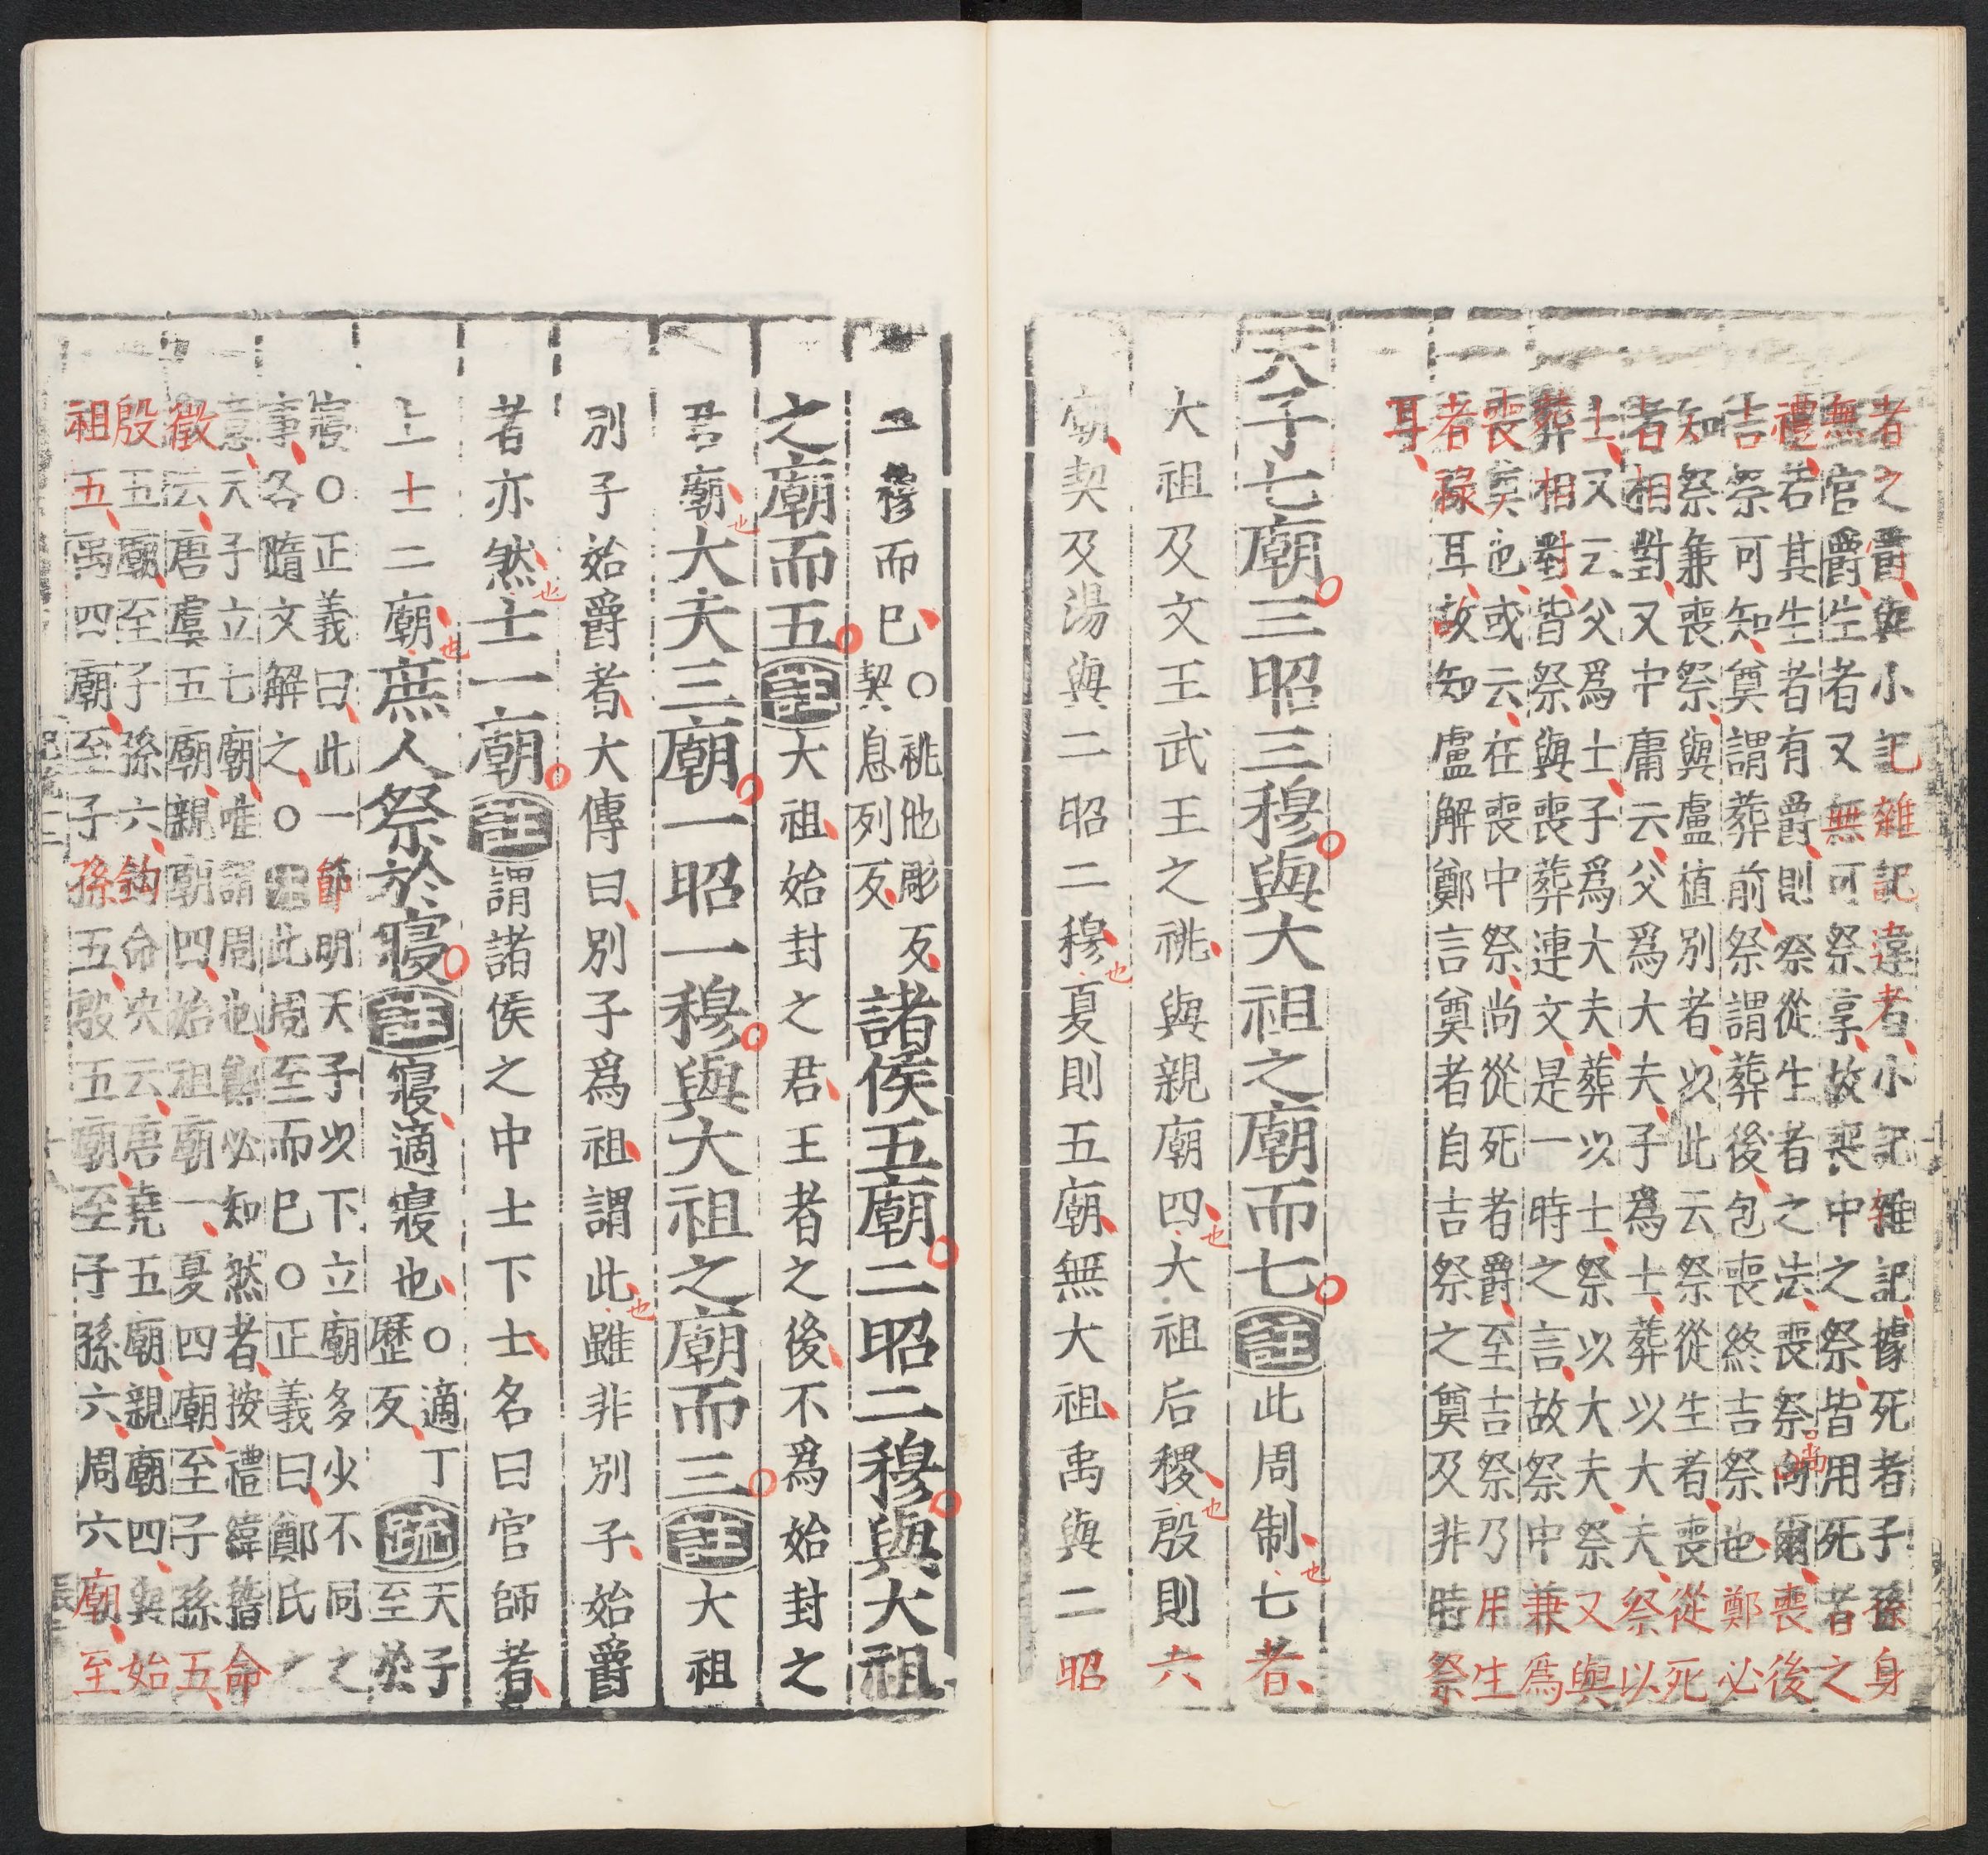 者之爵與小記雜記違者小記雜記據死者子孫身
無官爵生者又無可祭享故喪中之祭皆用死者之
禮若其生者有爵則祭從生者之法喪祭尚爾喪後
吉祭可知奠謂葬前祭謂葬後包喪終吉祭也鄭必
知祭兼喪祭與盧植別者以此云祭從生者喪從死
者相對又中庸云父爲大夫子爲士葬以大夫祭以
士又云父爲士子爲大夫葬以士祭以大夫祭又與
葬相對皆祭與喪葬連文是一時之言故祭中兼爲
喪奠也或云在喪中祭尚從死者爵至吉祭乃用生
者祿耳故知盧解鄭言奠者自吉祭之奠及非時祭
耳
天子七廟三昭三穆與大祖之廟而七註此周制也七者
大祖及文王武王之祧與親廟四也大祖后稷也殷則六
廟契及湯與二昭二穆也夏則五廟無大祖禹與二昭
二穆而巳○祧他彫反契息列反諸侯五廟二昭二穆與大祖
之廟而五註大祖始封之君王者之後不爲始封之
君廟也大夫三廟一昭一穆與大祖之廟而三註大祖
別子始爵者大傳曰別子爲祖謂此也雖非別子始爵
者亦然也士一廟註謂諸侯之中士下士名曰官師者
上士二廟也庶人祭於寢註寢適寢也○適丁歷反疏天子至於
寢○正義曰此一節明天子以下立廟多少不同之
事各隨文解之○註此周至而巳○正義曰鄭氏之
意天子立七廟唯謂周也鄭必知然者按禮緯稽命
徵云唐虞五廟親廟四始祖廟一夏四廟至子孫五
殷五廟至子孫六鈎命决云唐堯五廟親廟四與始
祖五禹四廟至子孫五殷五廟至子孫六周六廟至